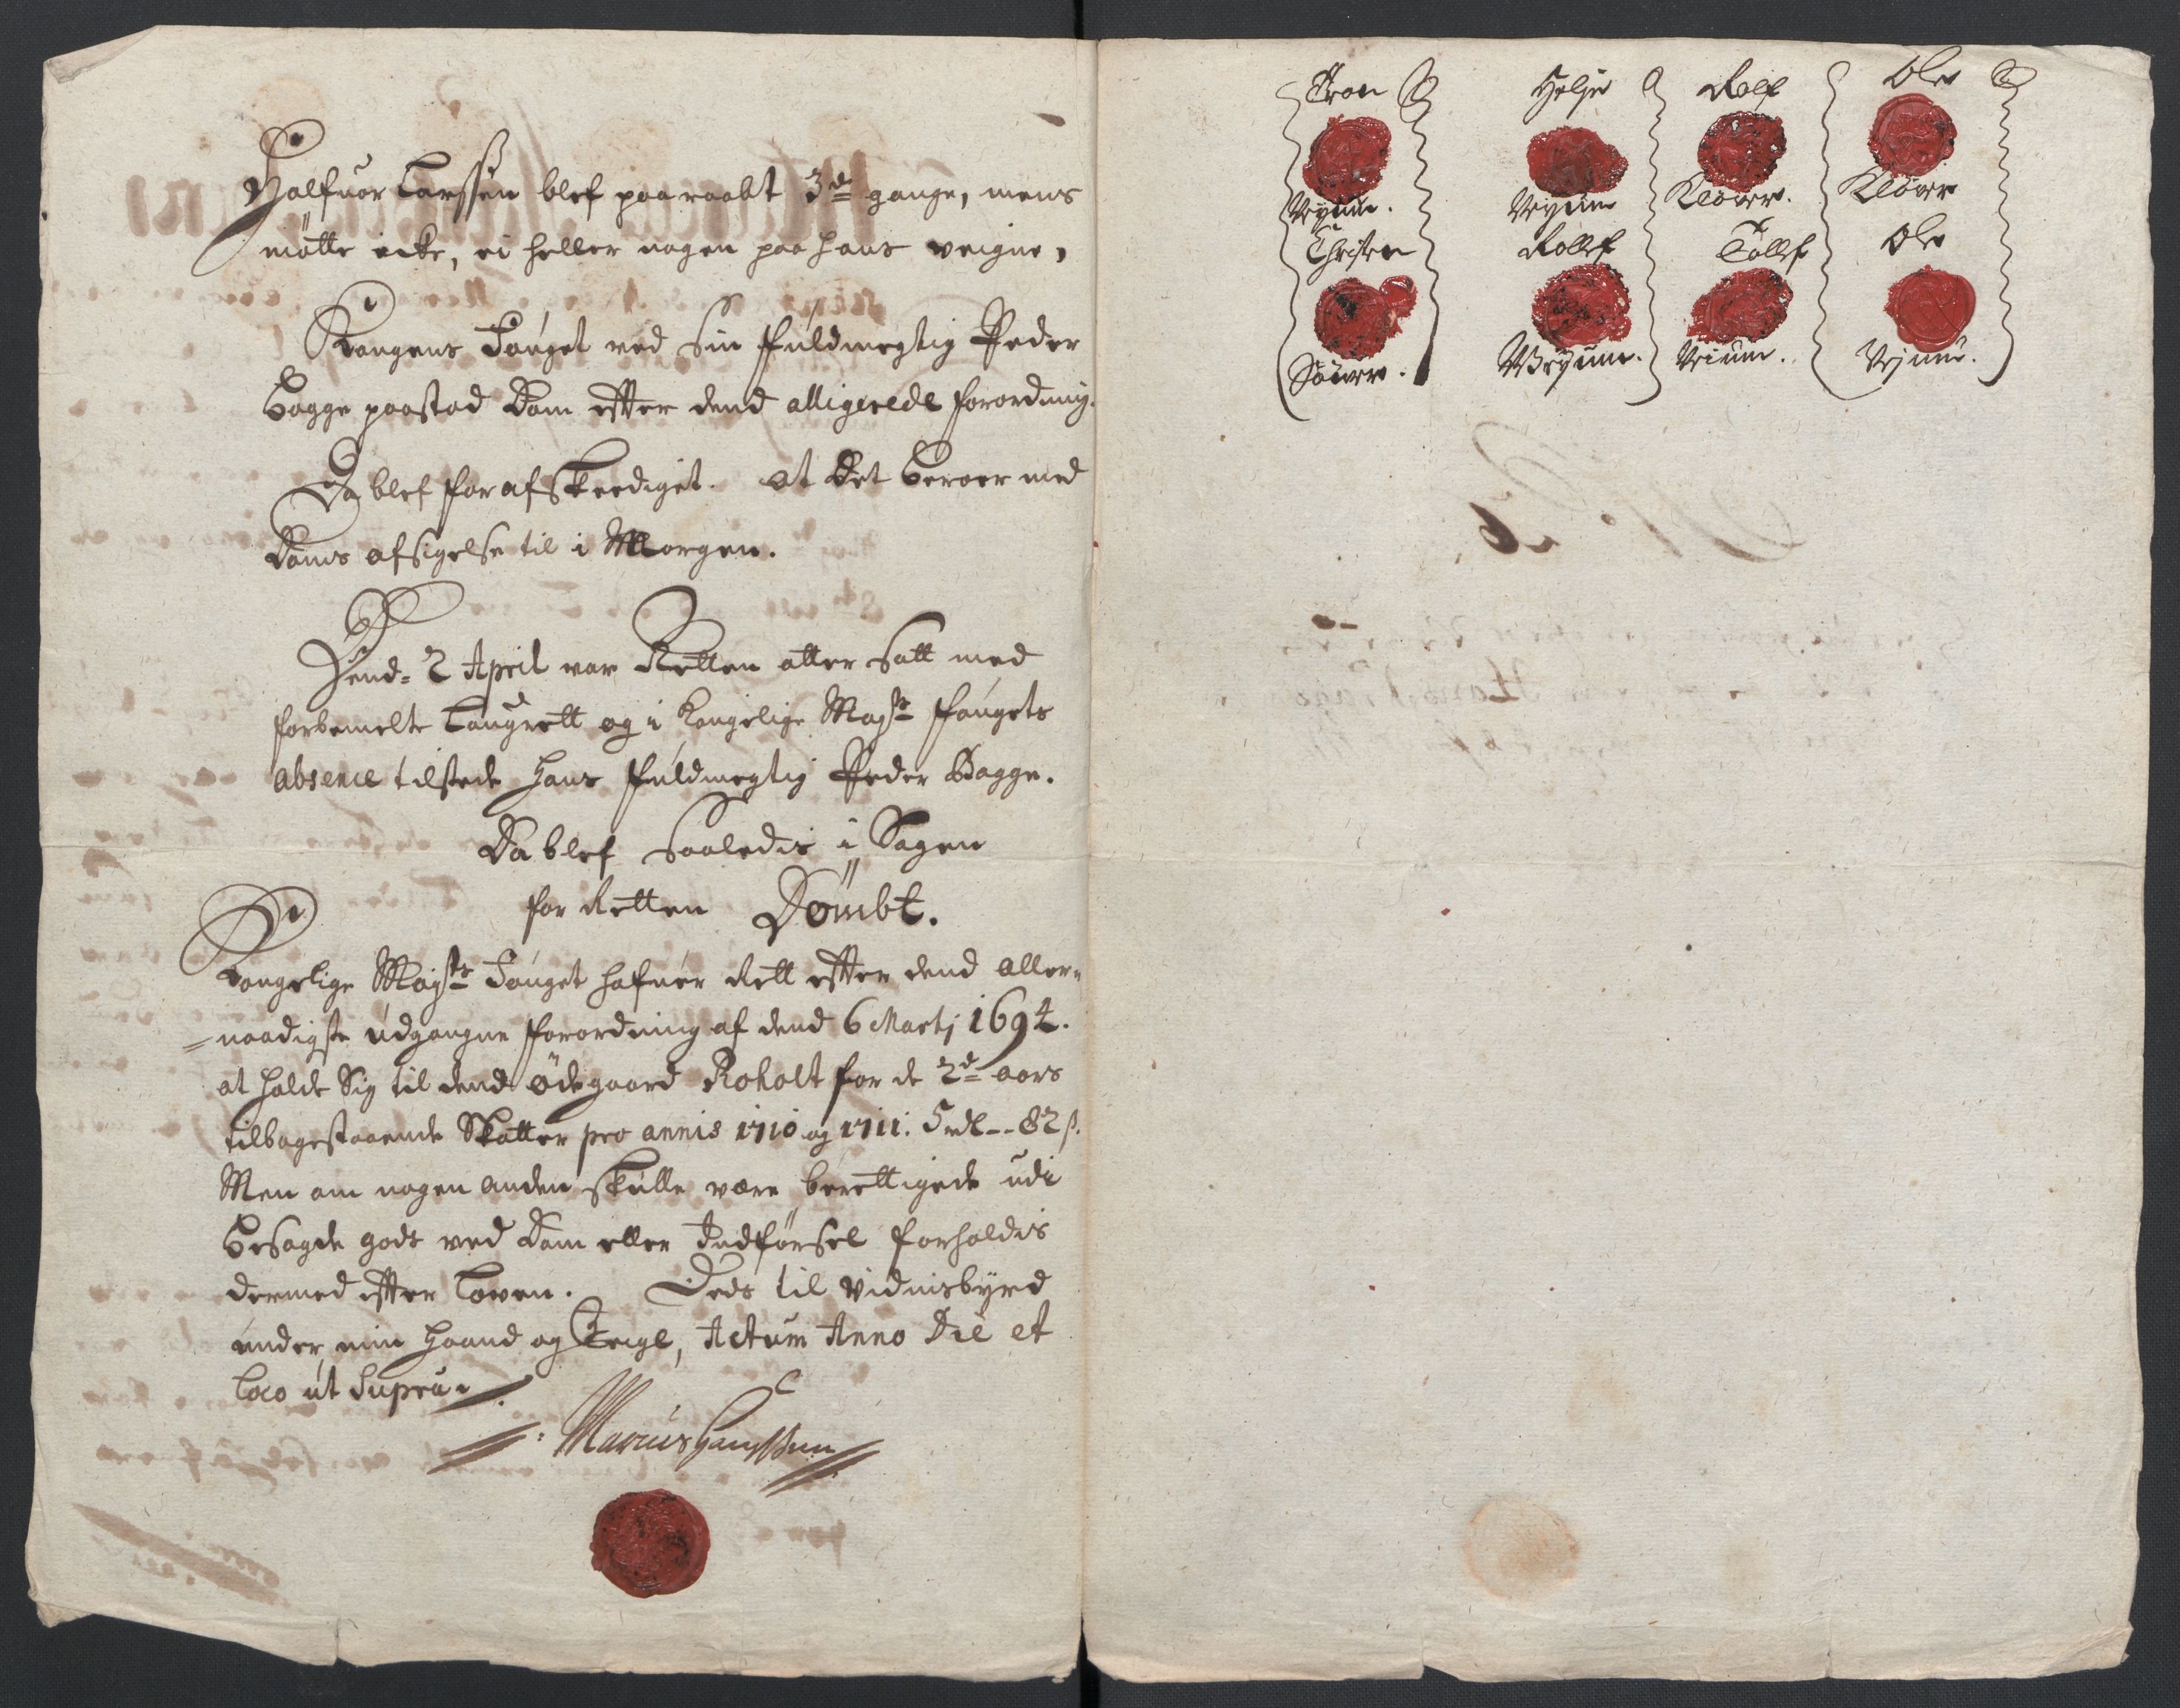 Halfuor Larssen blef paaraabt 3de gange, mens
mötte icke, ei heller nogen paa hans veigne,
Kongens Fouget ved sin fuldmegtig Peder
Bagge paastod Dom efter dend alligerede forordning.
Da blef for afskeediget. at Det beroer med
Doms afsigelse til i Morgen.
Dend 2 April var Retten atter satt med
forbemelte Laugrett og i Kongelige Maysts fougets
absence tilstede hans fuldmegtig Peder Bagge.
Da blef saaledis i Sagen
for Retten Dömbt.
Kongelige Maysts Fouget hafuer Rett efter dend aller-
naadigste udgangne forordning af dend 6 Martj 1694.
at holde Sig til dend ödegaard Roholt for de 2de aars
tilbagestaaende Skatter pro annis 1710 og 1711. 5 rdl -- 82 s.
Men om nogen anden skulle være berettigede udi
besagde gods ved Dom eller Indförsel forholdis
dermed efter Loven. Dets til vidnisbyrd
under min haand og Zeigl, Actum Anno Die et
Loco ut Supra.
Marcus Hanssen
Tron
Helje
Rolf
Ole
Vrjum.
Vrjum
Klöver.
Klöver
Christen
Rollef
Tollef
Ole